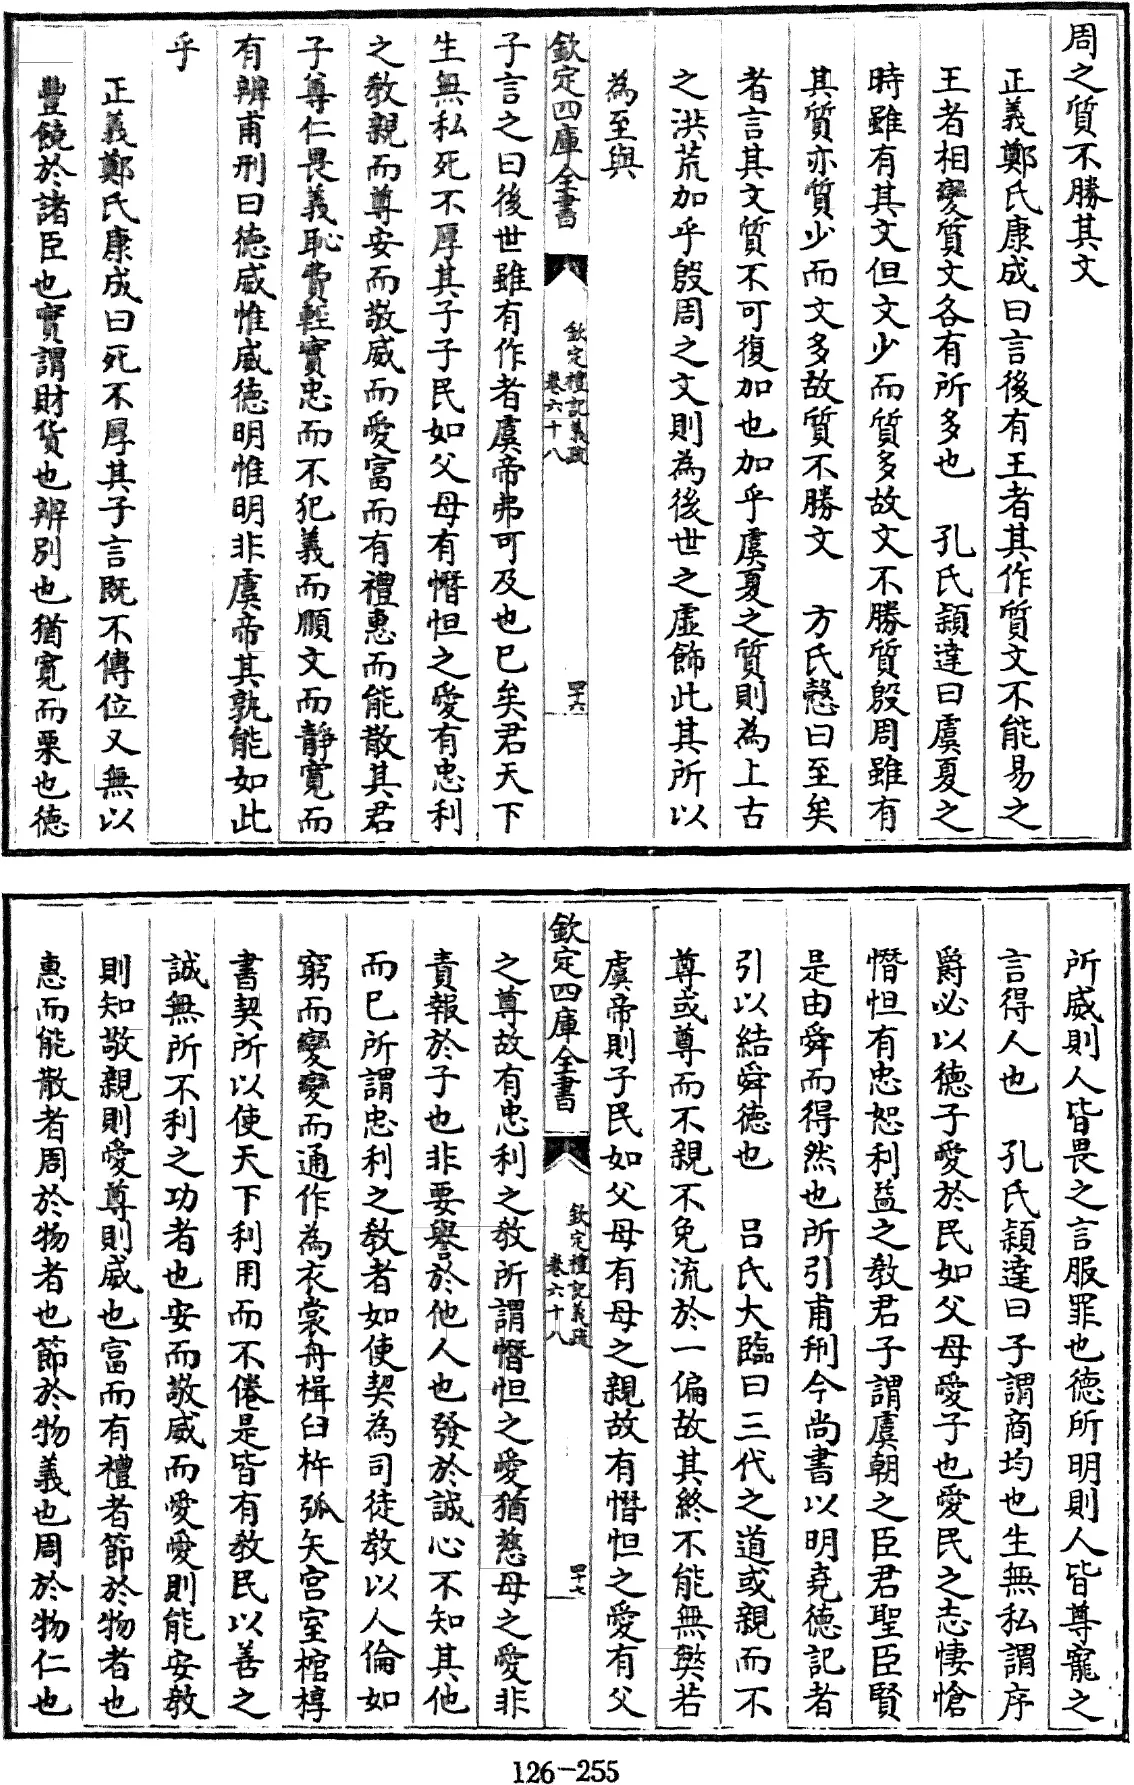 周之質不勝其文
正義鄭氏康成曰言後有王者其作質文不能易之
王者相變質文各有所多也　孔氏穎達曰虞夏之
時雖有其文但文少而質多故文不勝質殷周雖有
其質亦質少而文多故質不勝文　方氏慤曰至矣
者言其文質不可復加也加乎虞夏之質則為上古
之洪荒加乎殷周之文則為後世之虛飾此其所以
為至與
欽定四庫全書　欽定禮記義疏卷六十八　四十六
子言之曰後世雖有作者虞帝弗可及也已矣君天下
生無私死不厚其子子民如父母有憯怛之愛有忠利
之教親而尊安而敬威而愛富而有禮惠而能散其君
子尊仁畏義恥費輕實忠而不犯義而順文而靜寬而
有辨甫刑曰德威惟威德明惟明非虞帝其孰能如此
乎
正義鄭氏康成曰死不厚其子言既不傳位又無以
豐饒於諸臣也實謂財貨也辨別也猶寬而栗也德
所威則人皆畏之言服罪也德所明則人皆尊寵之
言得人也　孔氏穎達曰子謂商均也生無私謂序
爵必以德子愛於民如父母愛子也愛民之志悽愴
憯怛有忠恕利益之教君子謂虞朝之臣君聖臣賢
是由舜而得然也所引甫刑今尚書以明堯德記者
引以結舜德也　呂氏大臨曰三代之道或親而不
尊或尊而不親不免流於一偏故其終不能無獘若
虞帝則子民如父母有母之親故有憯怛之愛有父
欽定四庫全書　欽定禮記義疏卷六十八　四十七
之尊故有忠利之教所謂憯怛之愛猶慈母之愛非
責報於子也非要譽於他人也發於誠心不知其他
而已所謂忠利之教者如使契為司徒教以人倫如
窮而變變而通作為衣裳舟楫臼杵弧矢宮室棺椁
書契所以使天下利用而不倦是皆有教民以善之
誠無所不利之功者也安而敬威而愛愛則能安敎
則知敬親則愛尊則威也富而有禮者節於物者也
惠而能散者周於物者也節於物義也周於物仁也
126-255